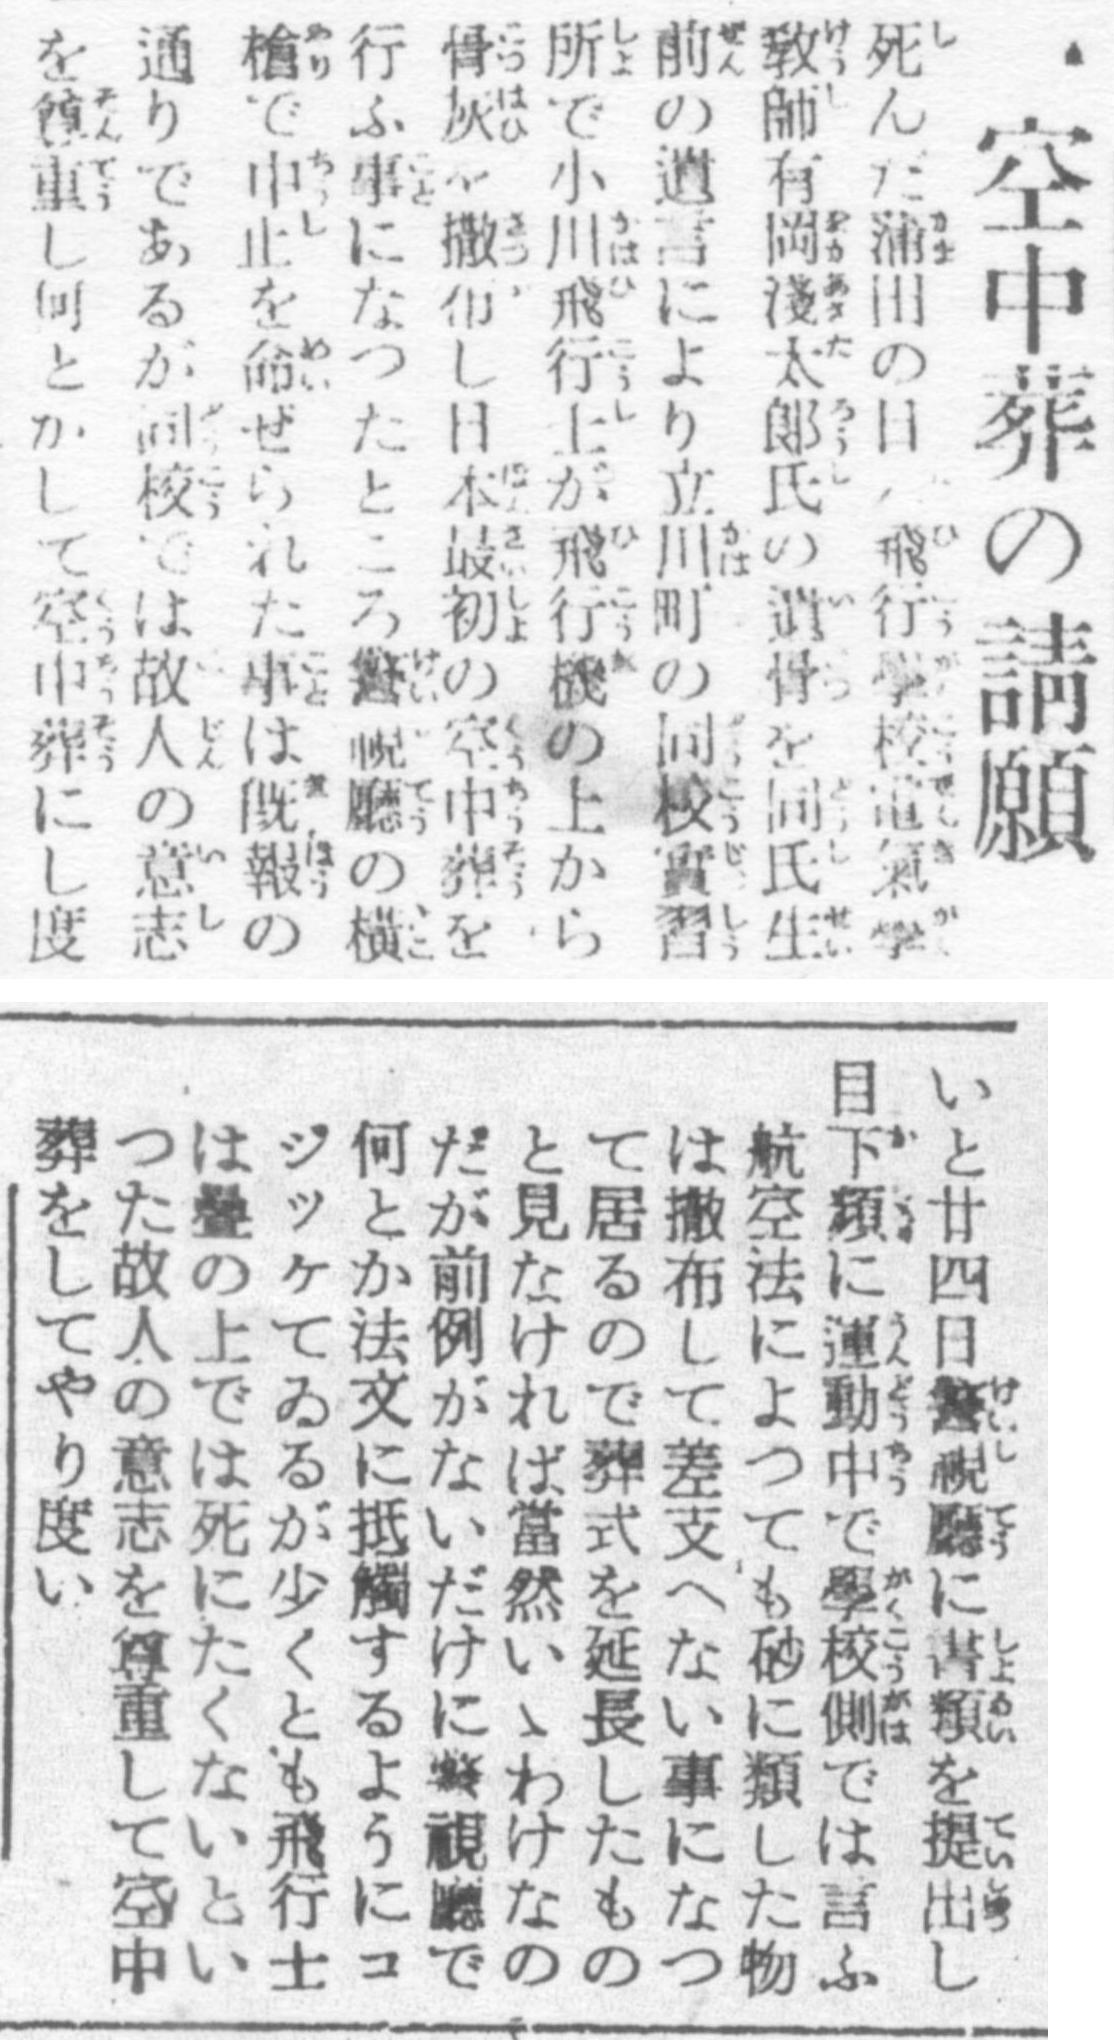 空中葬の請願
死んだ蒲田の日本飛行學校電氣學
教師有岡淺太郎氏の遺骨を同氏生
前の遺言により立川町の同校實習
所で小川飛行士が飛行機の上から
骨灰を撒布し日本最初の空中葬を
行ふ事になつたところ警視廳の横
槍で中止を命ぜられた事は既報の
通りであるが同校では故人の意志
を尊重し何とかして空中葬にし度
いと廿四日警視廳に書類を提出し
目下頻に運動中で學校側では言ふ
航空法によつても砂に類した物
は撒布して差支へない事になつ
て居るので葬式を延長したもの
と見なければ當然いゝわけなの
だが前例がないだけに警視廳で
何とか法文に抵觸するようにコ
ジツケてゐるが少くとも飛行士
は疊の上では死にたくないとい
つた故人の意志を尊重して空中
葬をしてやり度い